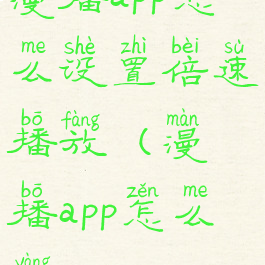 漫播app怎
me shè zhì bèi sù
么设置倍速
bō fàng màn
播放（漫
bō zěn me
播app怎么
yòng